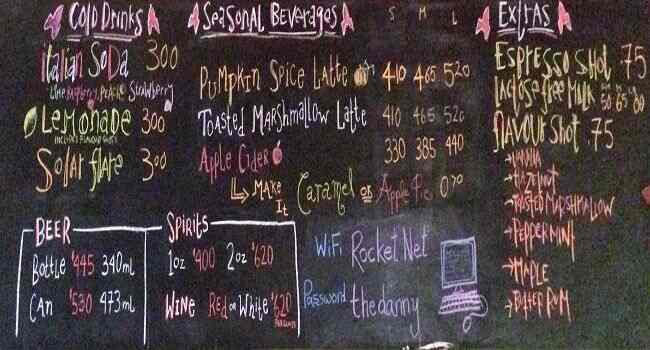 Cold Drinks
Italian Soda 300
Lime Raspberry Peach Strawberry
Lemonade 300
Solar flare 300
Seasonal Beverages S M L
Pumpkin Spice Latte 410 465 520
Toasted Marshmallow Latte 410 465 520
Apple Cider 330 385 440
Make It Caramel or Apple Pie 070
Extras
Espresso Shot 75
Lactose free Milk 50 65 80
Flavour Shot .75
Vanilla
Hazelnut
Toasted Marshmallow
Peppermint
Maple
Butter Rum
Beer
Bottle $445 340ml
Can $530 473ml
Spirits
1oz $400 2oz $620
Wine Red or White $620
WiFi Rocket Net
Password thedanny